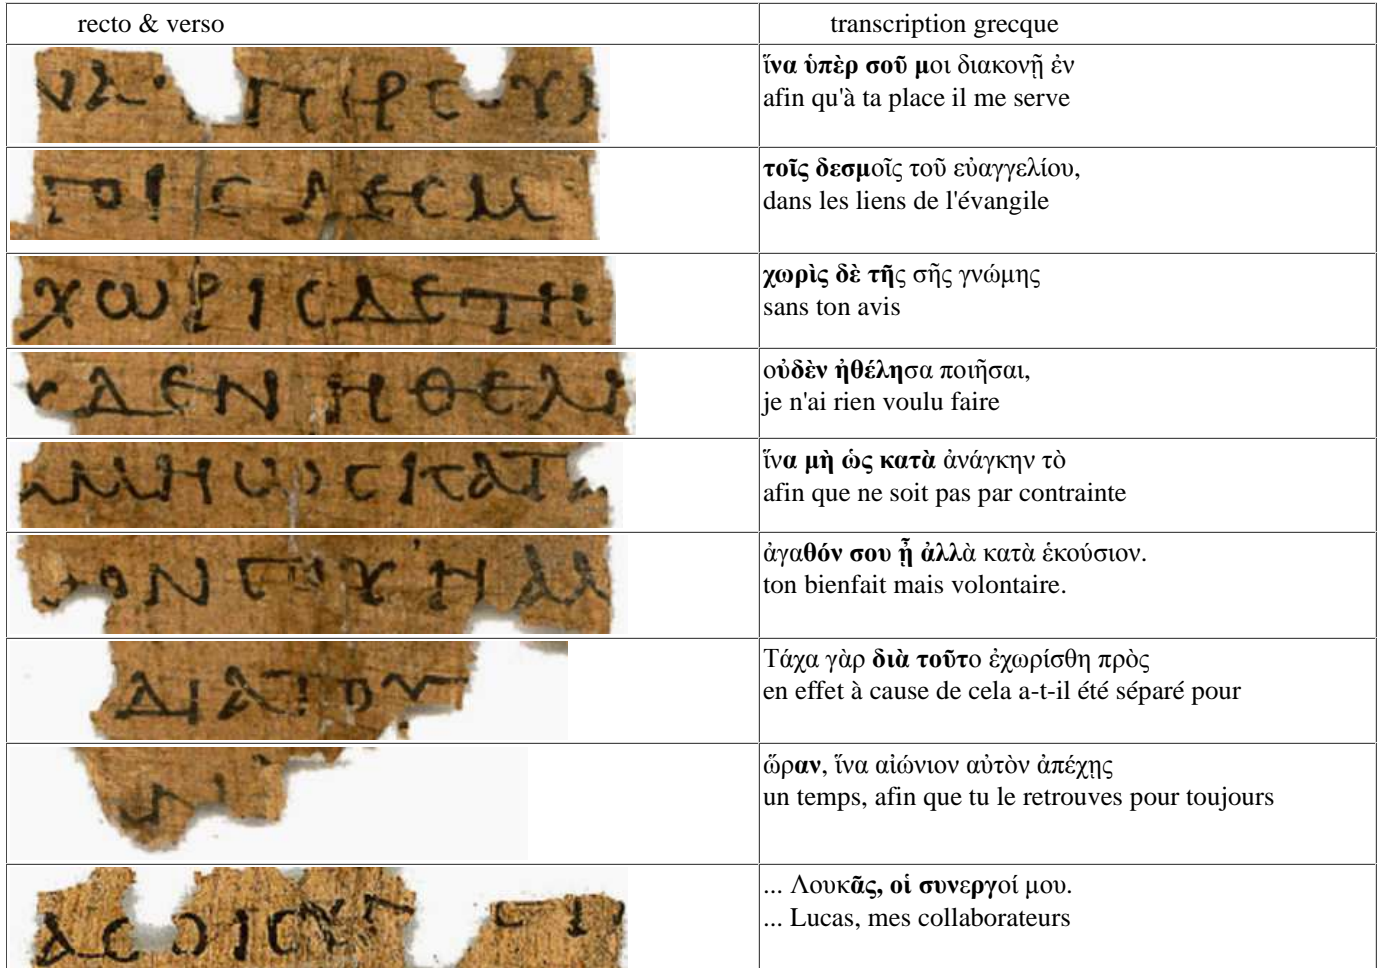 recto & verso
transcription grecque
ἵνα ὑπὲρ σοῦ μοι διακονῇ ἐν
afin qu'à ta place il me serve
τοῖς δεσμοῖς τοῦ εὐαγγελίου,
dans les liens de l'évangile
ΤΟΙϹ ΔΕϹΜ
χωρὶς δὲ τῆς σῆς γνώμης
sans ton avis
ΧΩΡΙϹΔΕΤΗ
οὐδὲν ἠθέλησα ποιῆσαι,
je n'ai rien voulu faire
ΔΕΝ ΗΘΕΛ
ἵνα μὴ ὡς κατὰ ἀνάγκην τὸ
afin que ne soit pas par contrainte
ΑΜΗΩϹΚΑΤΑ
ἀγαθόν σου ᾖ ἀλλὰ κατὰ ἑκούσιον.
ton bienfait mais volontaire.
Τάχα γὰρ διὰ τοῦτο ἐχωρίσθη πρὸς
en effet à cause de cela a-t-il été séparé pour
ΔΙΑΤΟΥ
ὥραν, ἵνα αἰώνιον αὐτὸν ἀπέχῃς
un temps, afin que tu le retrouves pour toujours
... Λουκᾶς, οἱ συνεργοί μου.
... Lucas, mes collaborateurs